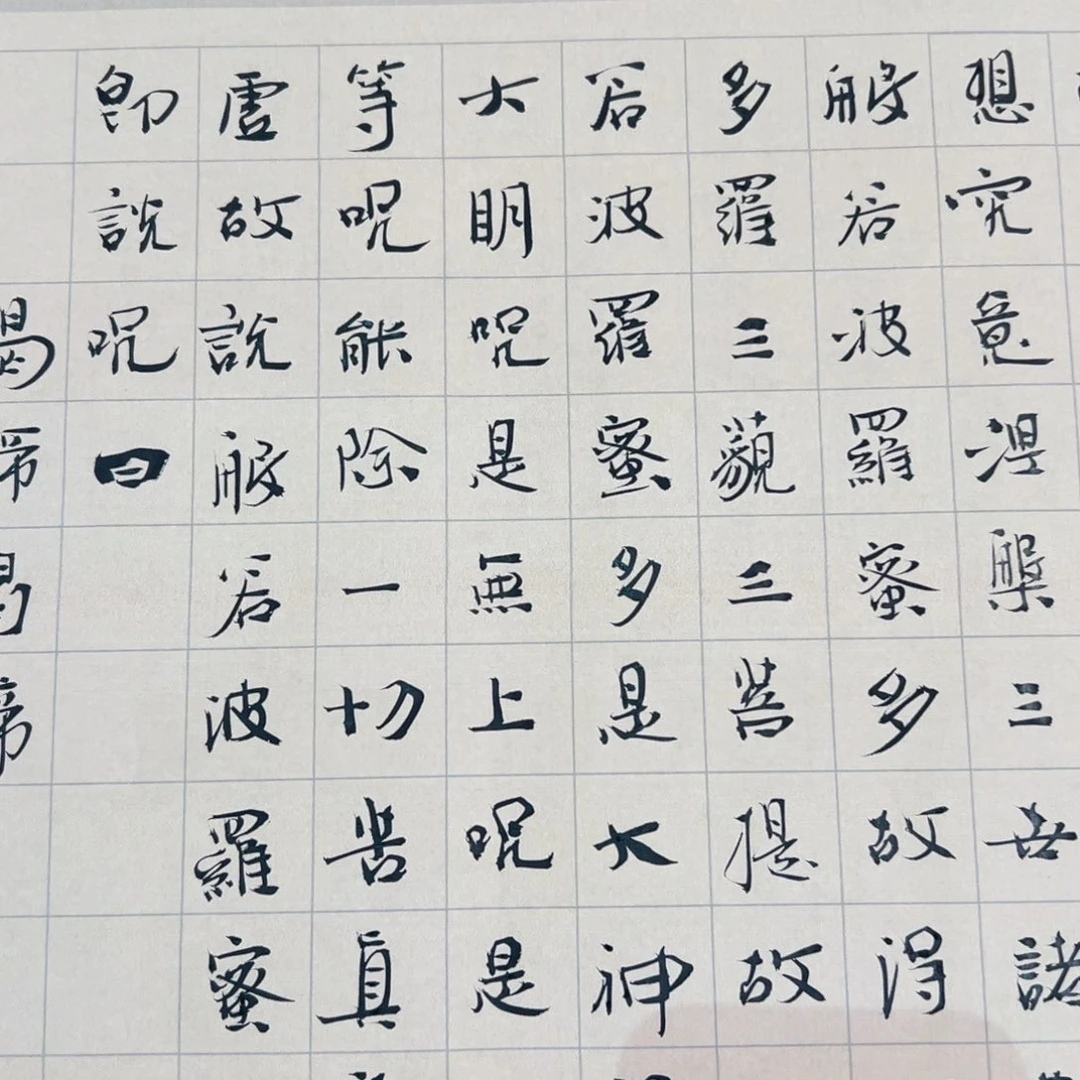 想究意涅槃三世諸
般若波羅蜜多故得
多羅三藐三菩提故
若波羅蜜多是大神
大明呪是無上呪是
等呪能除一切苦真
虛故說般若波羅蜜
即說呪曰
揭帝揭帝